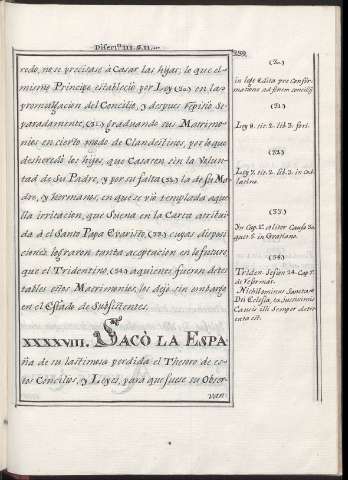 Disert.n III. §. II.
redo, no se precisase à Casar las hijas, lo que el
mismo Principe estableció por Ley (50) en la
promulgacion del Concilio, y despues repitio Se
paradamente, (51) graduando sus Matrimo-
nios en cierto modo de Clandestinos, por lo que
desheredó los hijos, que Casaren sin la Volun-
tad de Su Padre, y por su falta (52) la de su Ma
dre, y hermanos, en que se vio templada aque
lla irritacion, que Suena en la Carta atribui
da à el Santo Papa Evaristo, (53) cuyas disposi
ciones lograron tanta acceptacion en lo futuro,
que el Tridentino, (54) aquienes fueron detes
tables estos Matrimonios, los dejó sin embargo
en el Estado de Subsistentes.
XXXXVIII. SACÒ LA ESPA
ña de su lastimosa perdida el Thesoro de es-
tos Concilios, y Leyes, para que fuese su Obser-
van-
(50)
in lege Edita pro Confir-
matione ad finem concilij
(51)
Ley 8. tit. 2. lib. 3. fori.
(52)
Ley 2. tit. 2. lib. 3. in
(53)
In Cap. 1. aliter Causa 30.
quest. 5. in Gratiano.
(54)
Triden. Sesion 24. Cap. 1.
de reformat.
Nichilominus Sancta
Dei Eclesia, ex Justissimis
Causis illa Semper detes-
tata est.